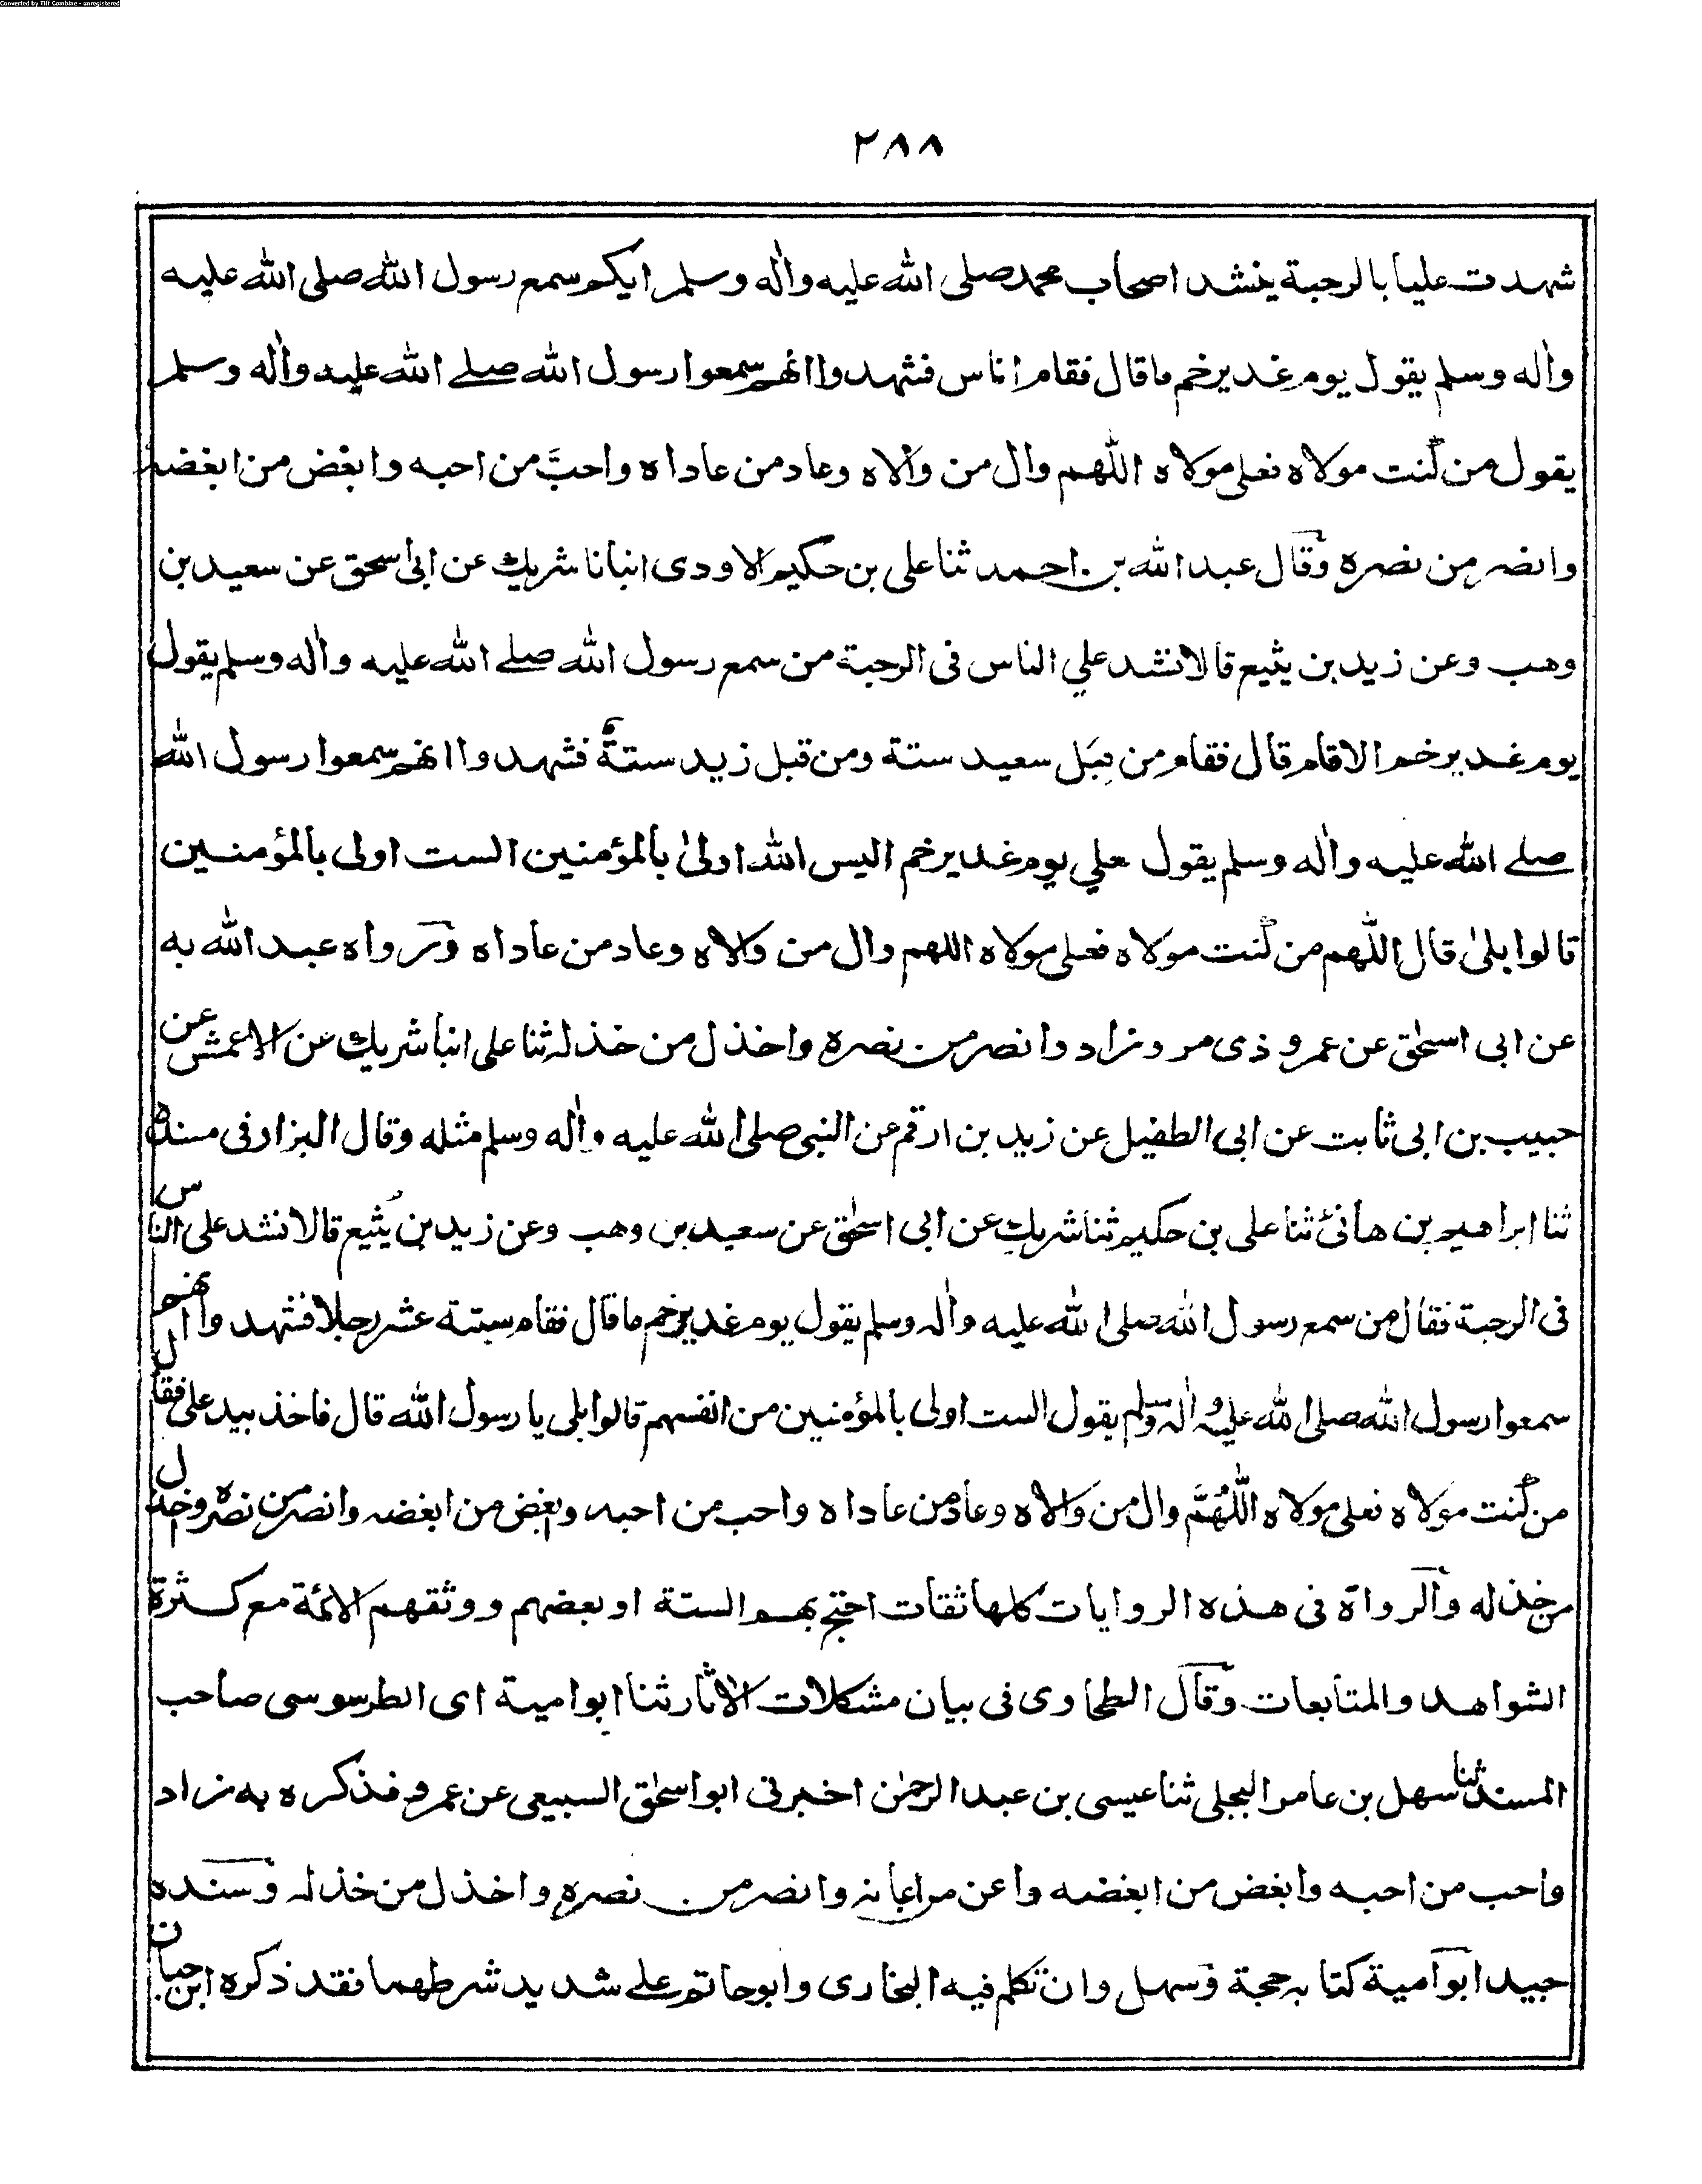 Converted by Tiff Combine - unregistered
٢٨٨
شهدت عليا بالرحبة ينشد اصحاب محمد صلى الله عليه واٰله وسلم ايكم سمع رسول الله صلى الله عليه
واٰله وسلم يقول يوم غدير خم ما قال فقام اناس فشهدوا انهم سمعوا رسول الله صلے الله عليه واٰله وسلم
يقول من كنت مولاه فعلى مولاه اللّٰهم وال من والاه وعاد من عاداه واحبَّ من احبه وابغض من ابغضه
وانصر من نصره وقال عبد الله بن احمد ثنا على بن حكيم الاودى انبانا شريك عن ابى اسحق عن سعيد بن
وهب وعن زيد بن يثيع قالا نشد علي الناس فى الرحبة من سمع رسول الله صلے الله عليه واٰله وسلم يقول
يوم غدير خم الا قام قال فقام من قِبَل سعيد ستة ومن قبل زيد ستةٌ فشهدوا انهم سمعوا رسول الله
صلے الله عليه واٰله وسلم يقول علي يوم غدير خم اليس الله اولىٰ بالمؤمنين الست اولى بالمؤمنين
قالوا بلىٰ قال اللّٰهم من كنت مولاه فعلى مولاه اللهم وال من والاه وعاد من عاداه ورواه عبد الله به
عن ابى اسحٰق عن عمرو ذى مر وزاد وانصر من نصره واخذل من خذله ثنا على انبأ شريك عن الاعمش عن
حبيب بن ابى ثابت عن ابى الطفيل عن زيد بن ارقم عن النبى صلى الله عليه واٰله وسلم مثله وقال البزار فى مسنده
ثنا ابراهيم بن هانئ ثنا على بن حكيم ثنا شريك عن ابى اسحٰق عن سعيد بن وهب وعن زيد بن يُثيع قالا نشد على الناس
فى الرحبة فقال من سمع رسول الله صلى الله عليه واٰله وسلم يقول يوم غدير خم ما قال فقام ستة عشر رجلا فشهدوا انهم
سمعوا رسول الله صلى الله عليه واٰله وسلم يقول الست اولى بالمؤمنين من انفسهم قالوا بلى يا رسول الله قال فاخذ بيد على فقال
من كنت مولاه فعلى مولاه اللّٰهُمَّ وال من والاه وعاد من عاداه واحب من احبه وابغض من ابغضه وانصر من نصره واخذل
من خذله والرواة فى هذه الروايات كلها ثقات احتج بهم الستة او بعضهم ووثقهم الائمة مع كثرة
الشواهد والمتابعات وقال الطحاوى فى بيان مشكلات الاثار ثنا ابو امية اى الطرسوسى صاحب
المسند ثنا سهل بن عامر البجلى ثنا عيسى بن عبد الرحمٰن اخبرنى ابو اسحٰق السبيعى عن عمرو فذكره به زاد
واحب من احبه وابغض من ابغضه واعن من اعانه وانصر من نصره واخذل من خذله وسنده
جيد ابو امية كتابه حجة وسهل وان تكلم فيه البخارى وابو حاتم على شديد شرطهما فقد ذكره ابن حبان